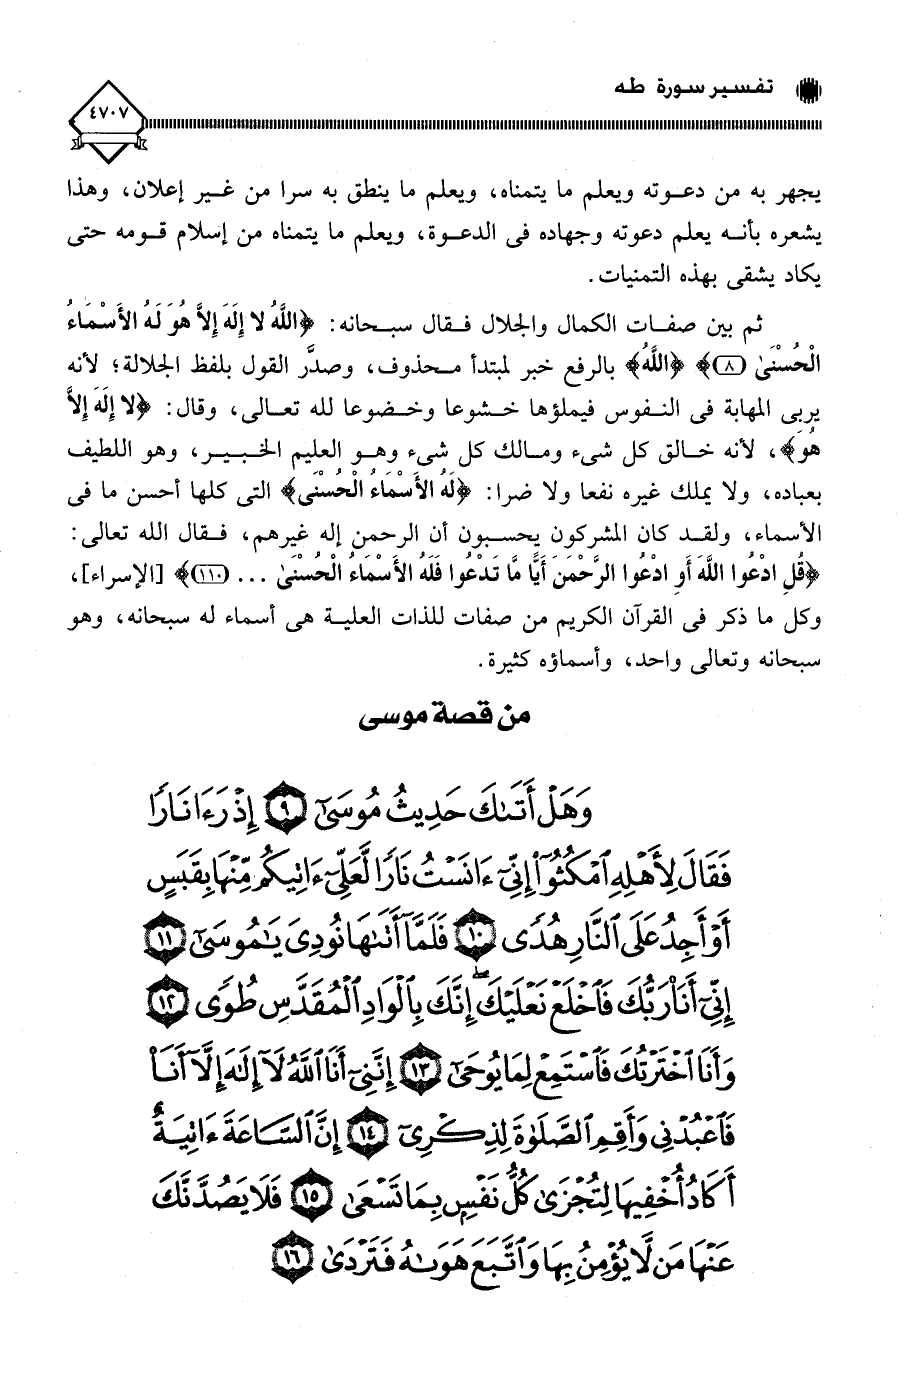 تفسير سورة طه
٤٧٠٧
يجهر به من دعوته ويعلم ما يتمناه، ويعلم ما ينطق به سرا من غير إعلان، وهذا
يشعره بأنه يعلم دعوته وجهاده فى الدعوة، ويعلم ما يتمناه من إسلام قومه حتى
يكاد يشقى بهذه التمنيات.
ثم بين صفات الكمال والجلال فقال سبحانه: ﴿اللَّهُ لا إِلَهَ إِلاَّ هُوَ لَهُ الأَسْمَاءُ
الْحُسْنَىٰ (٨)﴾ ﴿اللَّهُ﴾ بالرفع خبر لمبتدأ محذوف، وصدَّر القول بلفظ الجلالة؛ لأنه
يربى المهابة فى النفوس فيملؤها خشوعا وخضوعا لله تعالى، وقال: ﴿لا إِلَهَ إِلاَّ
هُوَ﴾، لأنه خالق كل شىء ومالك كل شىء وهو العليم الخبير، وهو اللطيف
بعباده، ولا يملك غيره نفعا ولا ضرا: ﴿لَهُ الأَسْمَاءُ الْحُسْنَى﴾ التى كلها أحسن ما فى
الأسماء، ولقد كان المشركون يحسبون أن الرحمن إله غيرهم، فقال الله تعالى:
﴿قُلِ ادْعُوا اللَّهَ أَوِ ادْعُوا الرَّحْمَنَ أَيًّا مَّا تَدْعُوا فَلَهُ الأَسْمَاءُ الْحُسْنَىٰ ... (١١٠)﴾ [الإسراء]،
وكل ما ذكر فى القرآن الكريم من صفات للذات العلية هى أسماء له سبحانه، وهو
سبحانه وتعالى واحد، وأسماؤه كثيرة.
من قصة موسى
وَهَلْ أَتَىٰكَ حَدِيثُ مُوسَىٰٓ ٩ إِذْ رَءَا نَارًا
فَقَالَ لِأَهْلِهِ ٱمْكُثُوٓا۟ إِنِّىٓ ءَانَسْتُ نَارًا لَّعَلِّىٓ ءَاتِيكُم مِّنْهَا بِقَبَسٍ
أَوْ أَجِدُ عَلَى ٱلنَّارِ هُدًى ١٠ فَلَمَّآ أَتَىٰهَا نُودِىَ يَـٰمُوسَىٰٓ ١١
إِنِّىٓ أَنَا۠ رَبُّكَ فَٱخْلَعْ نَعْلَيْكَ ۖ إِنَّكَ بِٱلْوَادِ ٱلْمُقَدَّسِ طُوًى ١٢
وَأَنَا ٱخْتَرْتُكَ فَٱسْتَمِعْ لِمَا يُوحَىٰٓ ١٣ إِنَّنِىٓ أَنَا ٱللَّهُ لَآ إِلَـٰهَ إِلَّآ أَنَا۠
فَٱعْبُدْنِى وَأَقِمِ ٱلصَّلَوٰةَ لِذِكْرِىٓ ١٤ إِنَّ ٱلسَّاعَةَ ءَاتِيَةٌ
أَكَادُ أُخْفِيهَا لِتُجْزَىٰ كُلُّ نَفْسٍۭ بِمَا تَسْعَىٰ ١٥ فَلَا يَصُدَّنَّكَ
عَنْهَا مَن لَّا يُؤْمِنُ بِهَا وَٱتَّبَعَ هَوَىٰهُ فَتَرْدَىٰ ١٦